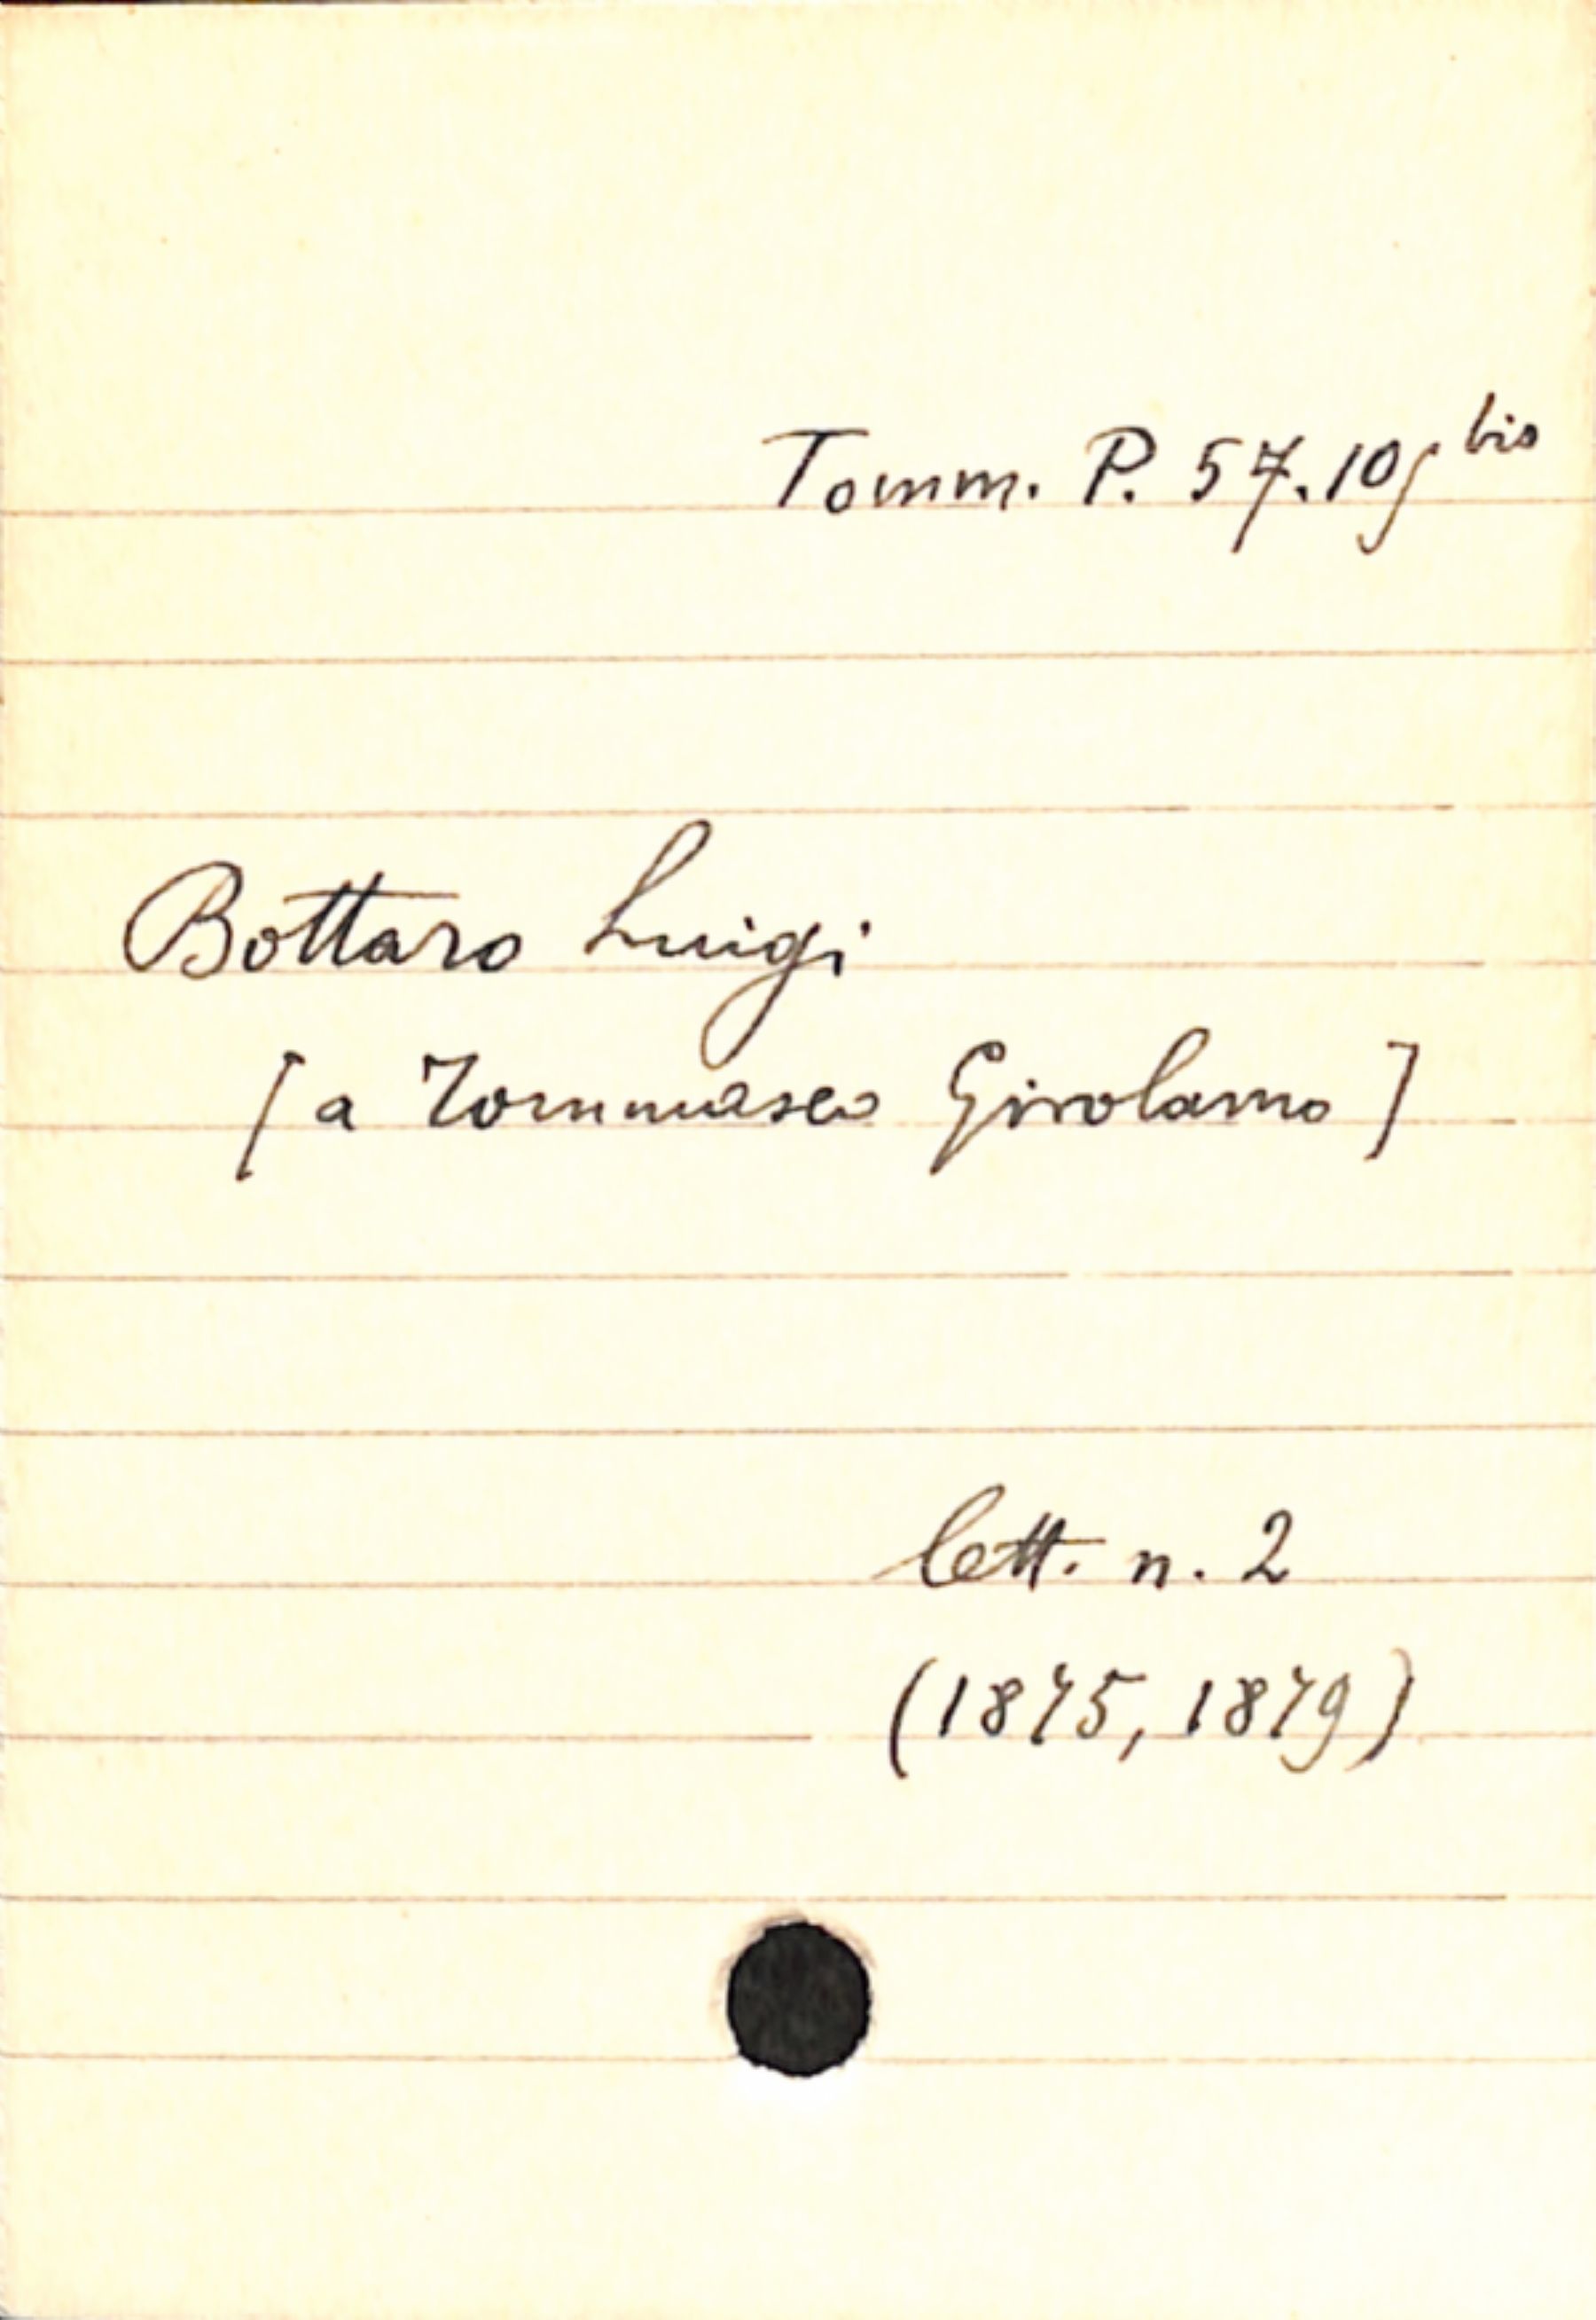 Tomm. P. 57.105 bis
Bottaro Luigi
[a Tommaseo Girolamo]
lett. n. 2
(1875, 1879)